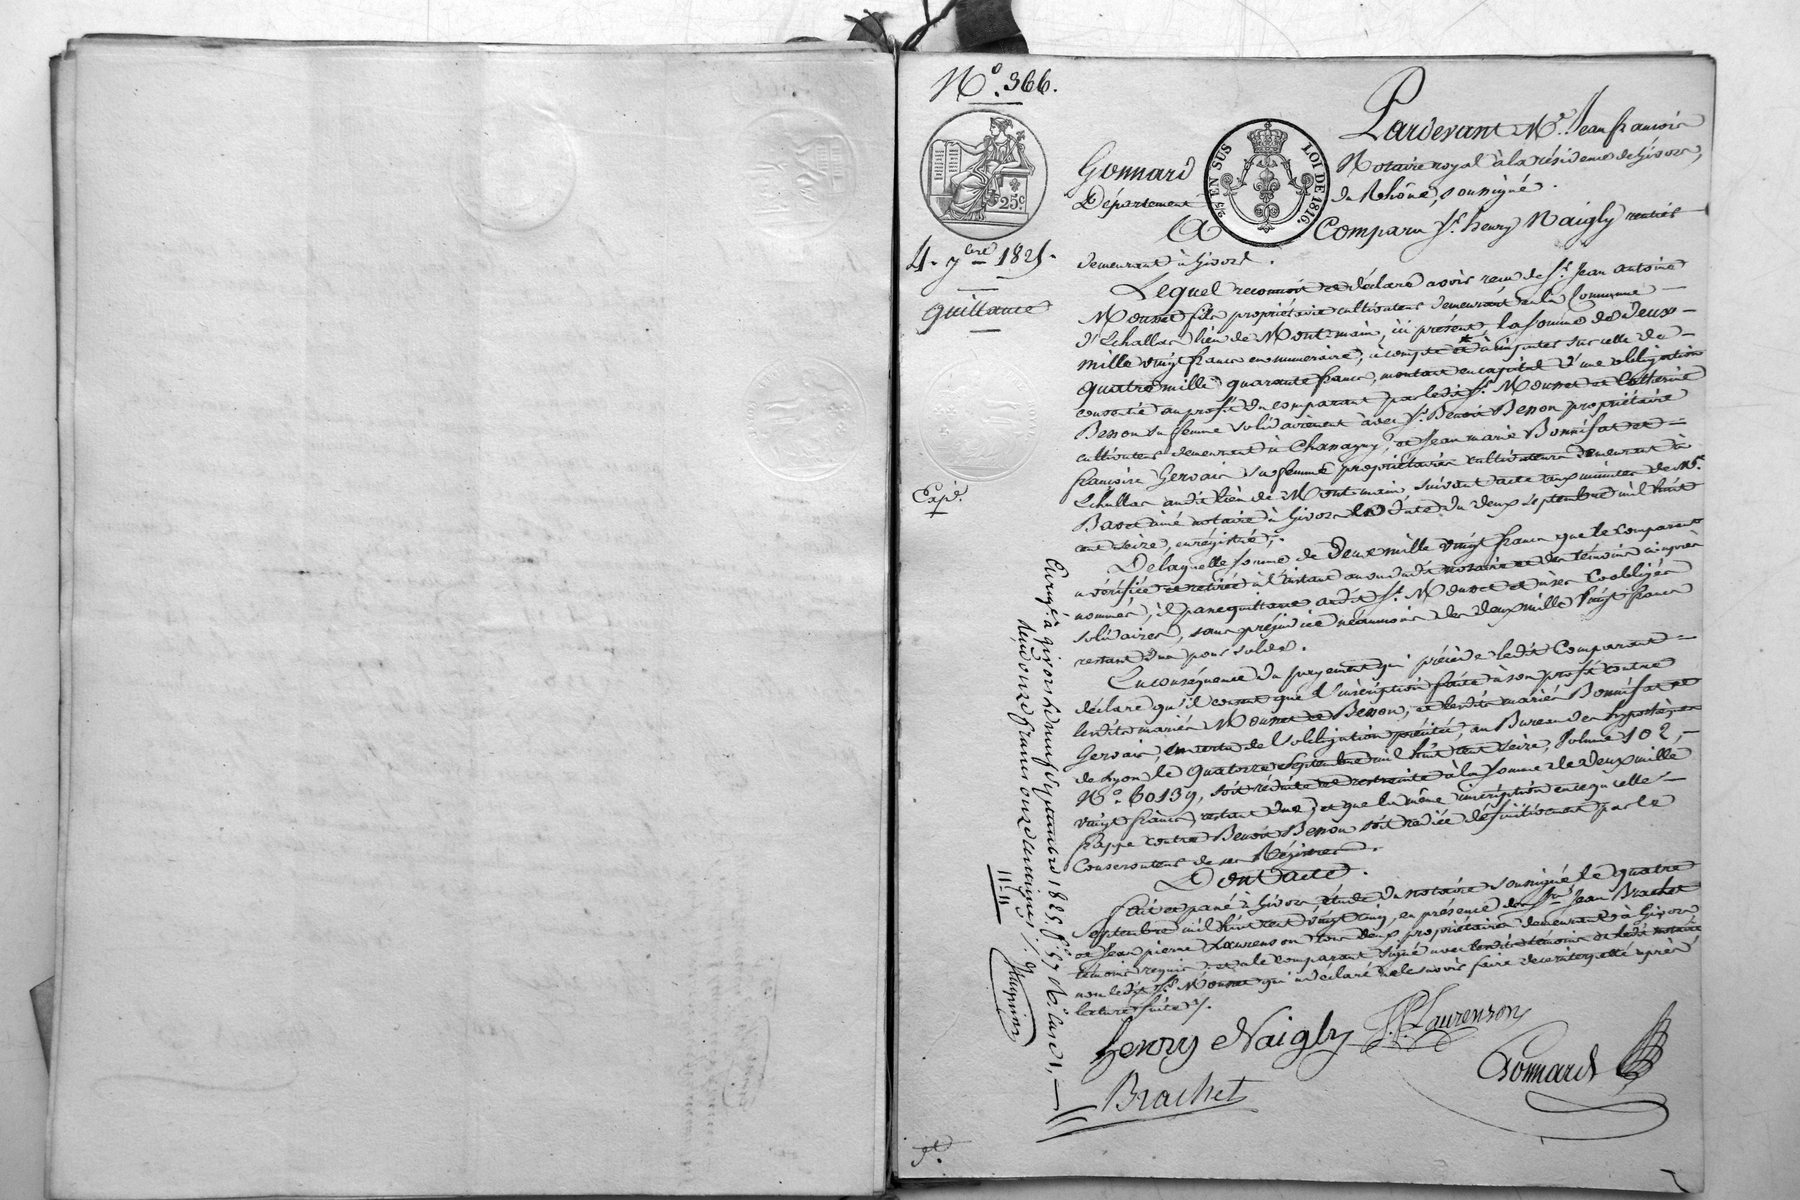 N.º 366.
25.c
4. 7bre 1825.
Quittance
Expé.
EN SUS LOI DE 1816.
Pardevant Me. Jean françois
Gonnard Notaire royal à la résidence de Givors,
Département du Rhône, soussigné.
A Comparu Sr. henry Naigly rentier
demeurant à Givors.
Lequel reconnoit et déclare avoir reçu de Sr. Jean Antoine
Mousset fils propriétaire cultivateur demeurant en la Commune
d'Echallas lieu de Montmain, ici présent, la somme de Deux
mille vingt francs en numéraire, à compte et à imputer sur celle de
quatre mille quarante francs, montant en capital d'une obligation
consentie au profit du comparant par ledit Sr. Mousset et Catherine
Besson sa femme solidairement avec Sr. Benoit Besson propriétaire
cultivateur demeurant à Chanagny, et Jean marie Bonnifat et
françoise Gervais sa femme propriétaires cultivateurs demeurant à
Echallas audit lieu de Montmain, suivant acte aux minutes de Me.
Basset ainé notaire à Givors en date du deux septembre mil huit
cent seize, enrégistré;
De laquelle somme de Deux mille vingt francs que le comparant
a vérifiée et retirée à l'instant au vu dudit notaire et des témoins ci-après
nommés, il passe quittance audit Sr. Mousset et à ses Coobligés
solidaires, sans préjudice néanmoins des deux mille vingt francs
restant dus pour solde.
En conséquence du payement qui précède ledit Comparant
déclare qu'il consent que l'inscription faite à son profit contre
lesdits mariés Mousset et Besson, et lesdits mariés Bonnifat et
Gervais, en vertu de l'obligation précitée, au Bureau des hypothèques
de Lyon le quatorze septembre mil huit cent seize, Volume 102,
N.º 60139, soit réduite et restreinte à la somme de deux mille
vingt francs restant due, et que la même inscription en ce qu'elle
frappe contre Benoit Besson soit radiée définitivement par le
Conservateur de ses Régistres.
Dont acte.
fait et passé à Givors étude du notaire soussigné le quatre
septembre mil huit cent vingt cinq, en présence des Srs. Jean Brachet
et Jean pierre Laurenson tous deux propriétaires demeurant à Givors
témoins requis et a le comparant signé avec lesdits témoins et ledit notaire
non ledit Sr. Mousset qui a déclaré ne le savoir faire de ce interpellé après
lecture faite.
henry Naigly J.P. Laurenson
Brachet Gonnard
Enrgé. à givors le neuf septembre 1825, fº. 57 Vº. Case 1,
reçu onze francs onze centimes
11.11